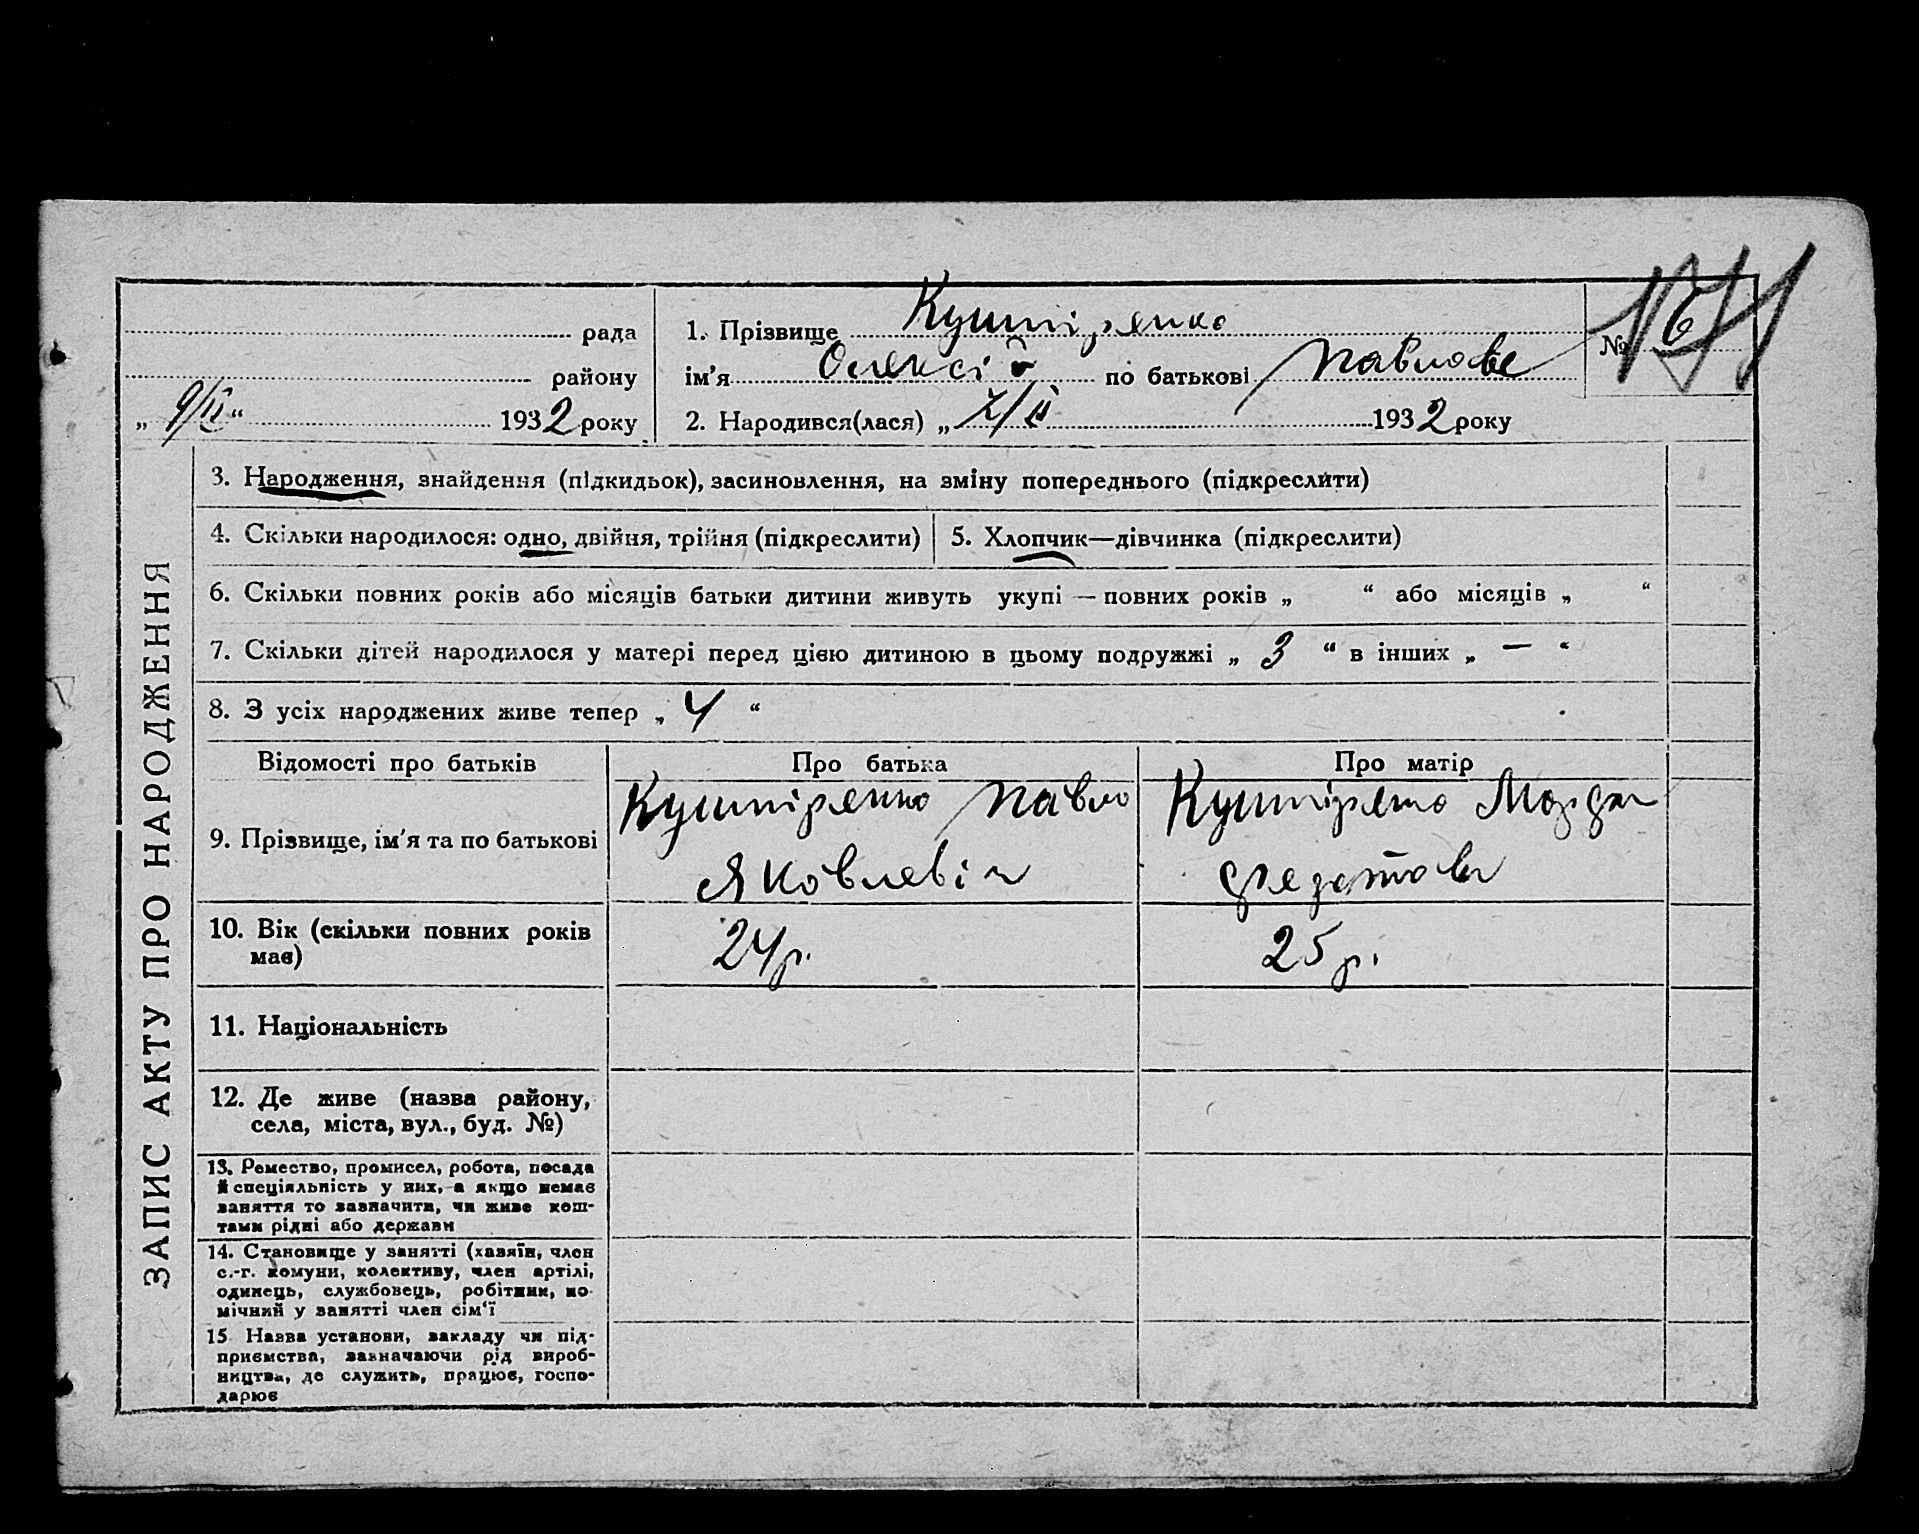 рада
району
„ 9/II “ 1932 року
1. Прізвище Кушніренко
ім’я Олексій по батькові Павлове
2. Народився(лася) „ 1932 року
№
ЗАПИС АКТУ ПРО НАРОДЖЕННЯ
3. Народження, знайдення (підкидьок), засиновлення, на зміну попереднього (підкреслити)
4. Скільки народилося: одно, двійня, трійня (підкреслити)
5. Хлопчик—дівчинка (підкреслити)
6. Скільки повних років або місяців батьки дитини живуть укупі — повних років „ “ або місяців „ “
7. Скільки дітей народилося у матері перед цією дитиною в цьому подружжі „ 3 “ в інших „ — “
8. З усіх народжених живе тепер „ 4 “
Відомості про батьків
Про батька
Про матір
9. Прізвище, ім’я та по батькові
Кушніренко Павло
Яковлевіч
Кушніренко
10. Вік (скільки повних років
має)
24 р.
25 р.
11. Національність
12. Де живе (назва району,
села, міста, вул., буд. №)
13. Ремество, промисел, робота, посада
й спеціяльність у них, а якщо немає
заняття то зазначити, чи живе кош-
тами рідні або держави
14. Становище у занятті (хазяїн, член
с.-г. комуни, колективу, член артілі,
одинець, службовець, робітник, по-
мічний у занятті член сім‘ї
15 Назва установи, закладу чи під-
приємства, зазначаючи рід вироб-
ництва, де служить, працює, госпо-
дарює